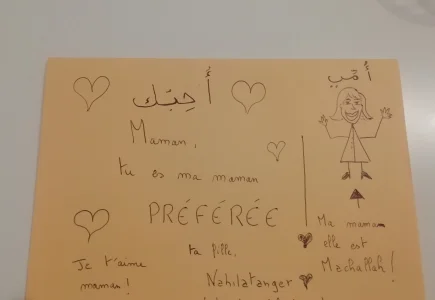 أُحِبّك
Maman,
tu es ma maman
PRÉFÉRÉE
ta fille,
Nahilatanger
Je t'aime
maman!
أُمّي
Ma maman
elle est
Machallah!